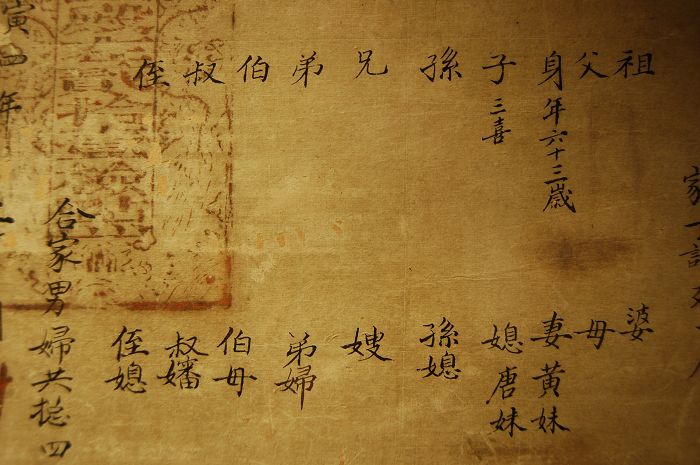 家
祖 婆
父 母
身年六十三歲 妻黃妹
子三喜 媳唐妹
孫 孫媳
兄 嫂
弟 弟婦
伯 伯母
叔 叔嬸
侄 侄媳
合家男婦共捴四
寅四年